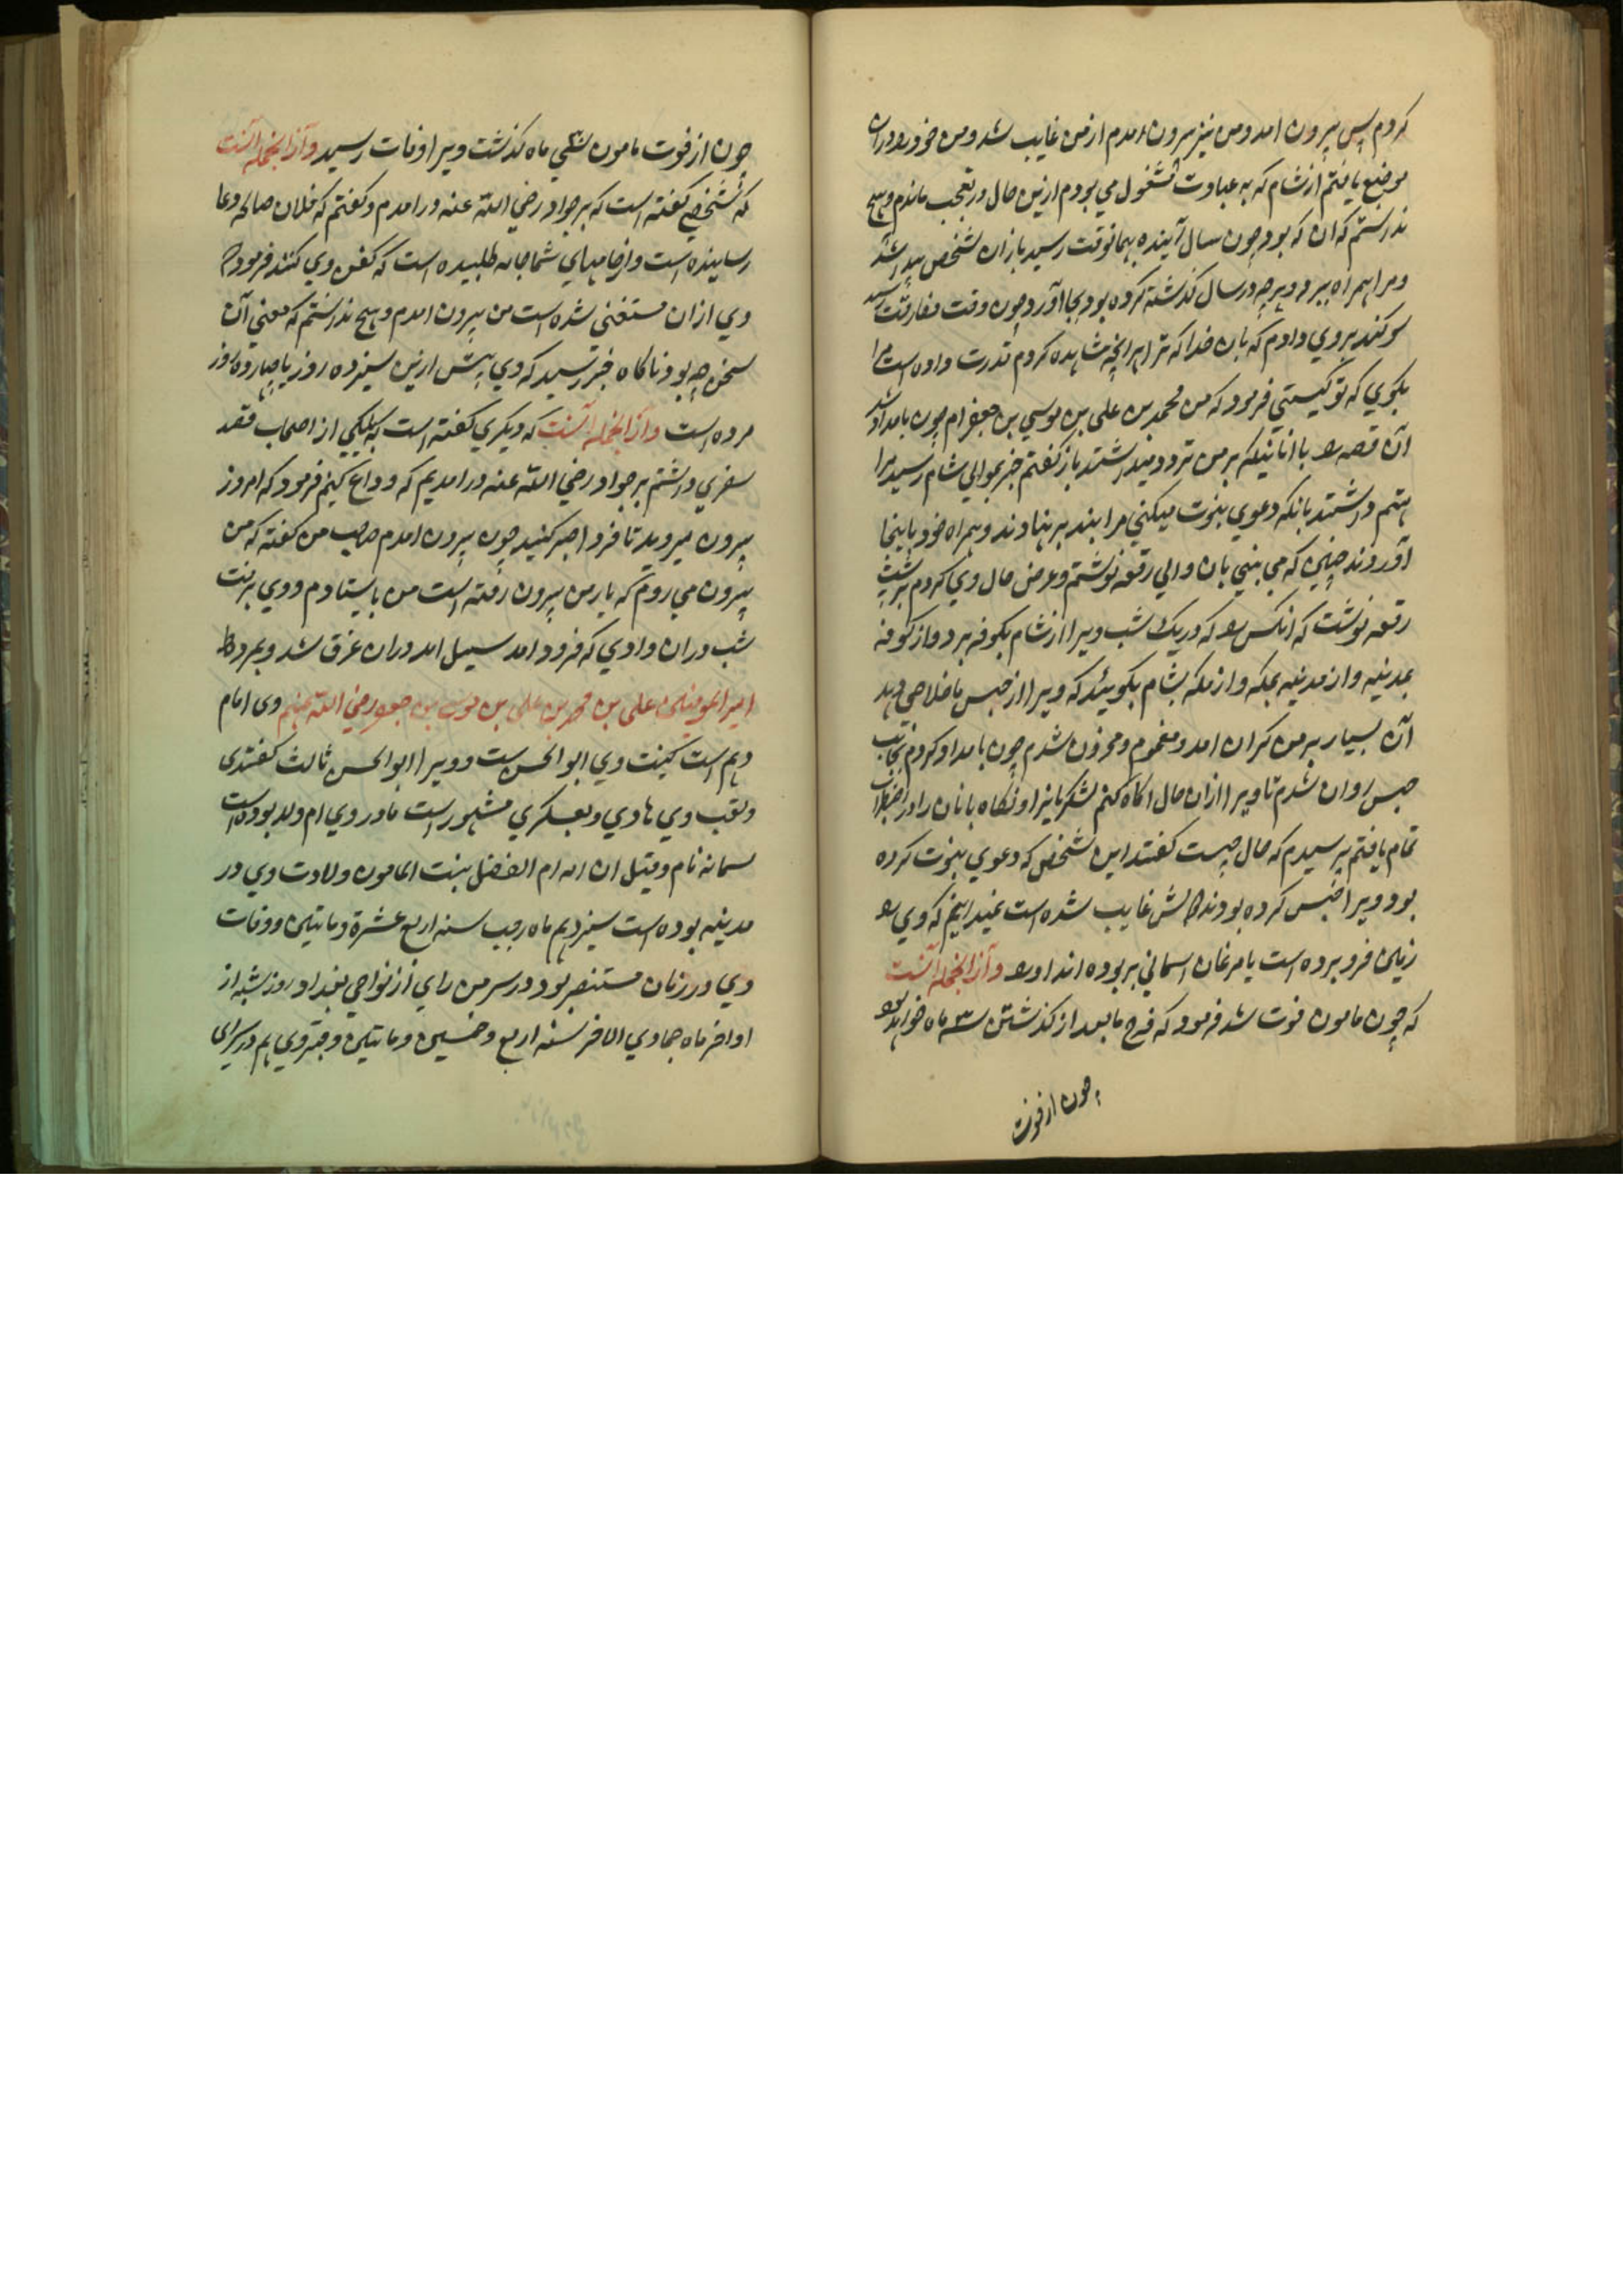 کردم پس بیرون امد و من نیز بیرون امدم از من غایب شد و من خود را در ان
موضع یافتم از شام که به عبادت مشغول می بودم ازین حال در تعجب ماندم و هیچ
ندانستم که ان که بود چون سال آینده بهمانوقت رسید باز ان شخص پیدا شد
و مرا همراه ببرد و هر چه در سال گذشته کرده بود بجا آورد چون وقت مفارقت رسید
سوکند بر وی دادم که بان خدا که ترا بر انچه مشاهده کردم قدرت داده است مرا
بکوی که تو کیستی فرمود که من محمد بن علی بن موسی بن جعفرام چون بامداد شد
آن قصه را با انانیکه بر من تردد میداشتند باز کفتم خبر بوالی شام رسید مرا
متهم داشتند بانکه دعوی نبوت میکنی مرا بند بر نهادند و همراه خود باینجا
آوردند چنین که می بینی بان والی رقعه نوشتم و عرض حال وی کردم بر پشت
رقعه نوشت که انکس را که در یک شب ویرا از شام بکوفه برد و از کوفه
بمدینه و از مدینه بمکه و از مکه بشام بکوئید که ویرا از حبس ما خلاصی دهد
آن بسیار بر من کران امد و مغموم و محزون شدم چون بامداد کردم بجانب
حبس روان شدم تا ویرا ازان حال اکاه کنم لشکریانرا و نکاه بانان را در اضطراب
تمام یافتم پرسیدم که حال چیست کفتند این شخص که دعوی نبوت کرده
بود و ویرا حبس کرده بودند غایب شده است نمیدانیم که وی را
زمین فرو برده است یا مرغان اسمانی بربوده اند او را و از انجمله آنست
که چون مامون فوت شد فرمود که فرج ما بعد از گذشتن سی ماه خواهد بود
چون از فوت
چون از فوت مامون سی ماه کذشت ویرا وفات رسید و از انجمله آنست
که شخصی کفته است که بر جواد رضی الله عنه در امدم و کفتم که فلان صالحه دعا
رسانیده است و از جامهای شما جامه طلبیده است که کفن وی کنند فرمود که
وی ازان مستغنی شده است من بیرون امدم و هیچ ندانستم که معنی آن
سخن چه بود ناکاه خبر رسید که وی پیش ازین سیزده روز یا چهارده روز
مرده است و از انجمله آنست که دیکری کفته است که یکی از اصحاب قصد
سفری داشتم بر جواد رضی الله عنه در امدیم که وداع کنیم فرمود که امروز
بیرون میروید تا فردا صبر کنید چون بیرون امدم صاحب من کفته که من
بیرون می روم که بار من بیرون رفته است من بایستادم و وی برفت
شب دران وادی که فرود امد سیل امد دران غرق شد و بمرد
امیر المومنین علی بن محمد بن علی بن موسی بن جعفر رضی الله عنهم وی امام
دهم است کنیت وی ابو الحسن است و ویرا ابو الحسن ثالث کفتندی
و لقب وی هادی و بعسکری مشهور است مادر وی ام ولد بوده است
سمانه نام و قیل ان امه ام الفضل بنت المامون ولادت وی در
مدینه بوده است سیزدهم ماه رجب سنه اربع عشرة و مایتین و وفات
وی در زمان مستنصر بود در سر من رای از نواحی بغداد روز شنبه از
اواخر ماه جمادی الاخر سنه اربع و خمسین و مایتین و قبر وی هم در سرای